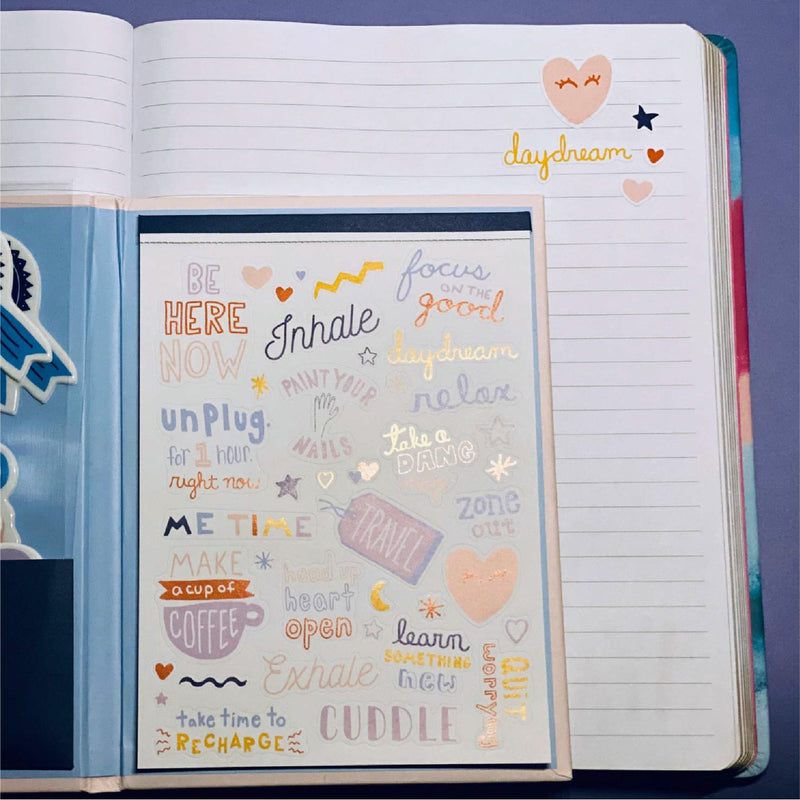 daydream
BE
HERE
NOW
Inhale
focus
ON THE
good
daydream
relax
PAINT YOUR
NAILS
unplug.
for 1 hour.
right now.
take a
DANG
ME TIME
TRAVEL
zone
out
MAKE
a cup of
COFFEE
head up
heart
open
learn
SOMETHING
new
QUIT
worrying
Exhale
take time to
RECHARGE
CUDDLE